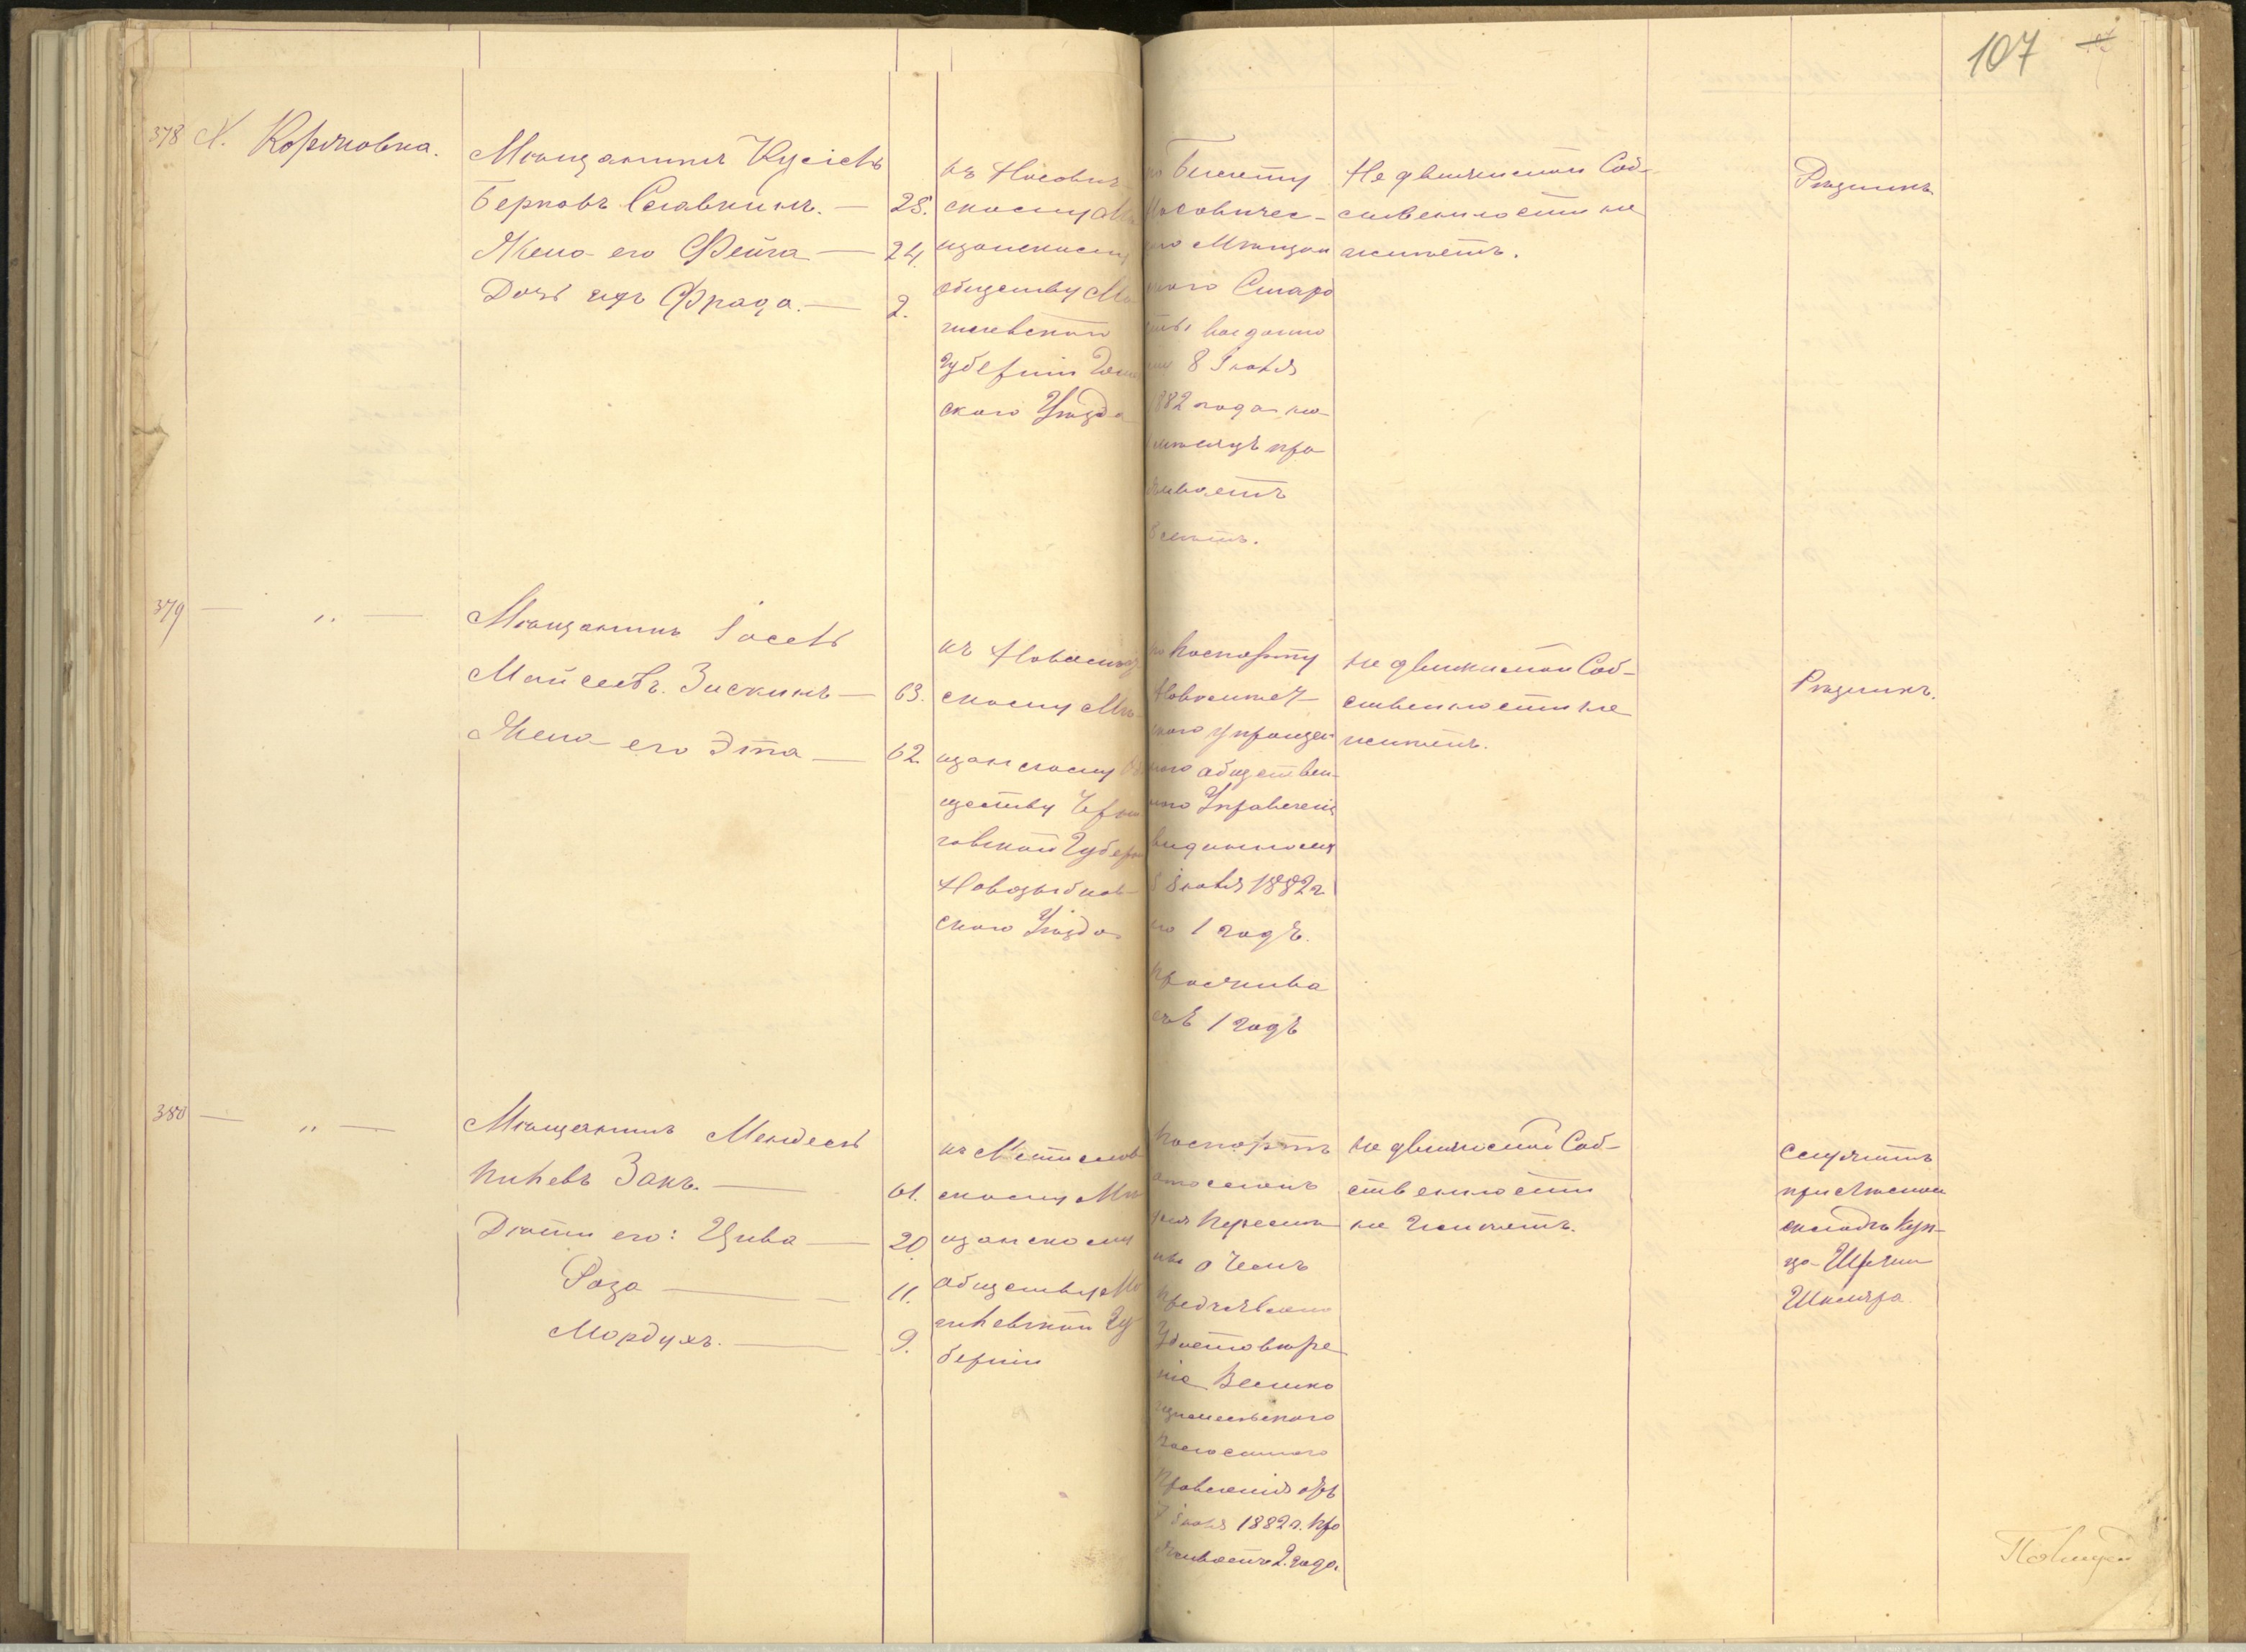 107
378 Х. Коржовка.
Мѣщанинъ Кусіель
Берковъ Славкинъ. — 28.
Жена его Фейга — 24.
Дочь ихъ Фрада. — 2.
къ Носович-
скому Мѣ
щанскому
обществу Мо
гилевской
Губерніи Гом
ского Уѣзда
по билету
Носовичес-
каго Мѣщан
скаго Старо
сты выданно
му 8 Іюля
1882 года на
мѣсяцъ про
живаетъ
лѣтъ.
Не движимой Соб-
ственности не
имѣетъ.
Рѣзникъ
379 — „ —
Мѣщанинъ Іосель
Мойсеевъ Зискинъ — 63.
Жена его Эта — 62.
къ Новомѣст
скому Мѣ-
щанскому Об
ществу Черни
говской Губерн
Новозыбков-
ского Уѣзда
по паспорту
Новомѣст
скаго упрощен
наго обществен-
наго Управленія
выданному
Іюля 1882 г
на 1 годъ.
прожива
етъ 1 годъ
не движимой Соб-
ственности не
имѣетъ.
Рѣзникъ.
380 — „ —
Мѣщанинъ Мендель
Пиневъ Закъ. — 61.
Дѣти его: Цива — 20.
Роза — 11.
Мордухъ. — 9.
къ Мстислов
скому Мѣ
щанскому
обществу Мо
гилевской Гу
берніи
паспортъ
отосланъ
для перемѣ
ны о чемъ
предъявлено
Удостовѣре
ніе Велико
Волосного
Правленія отъ
7 Іюля 1882 г. про
живаетъ 2 года.
не движимой Соб-
ственности
не имѣетъ.
Служитъ
при лѣсном
складѣ Куп-
ца
Шкляра